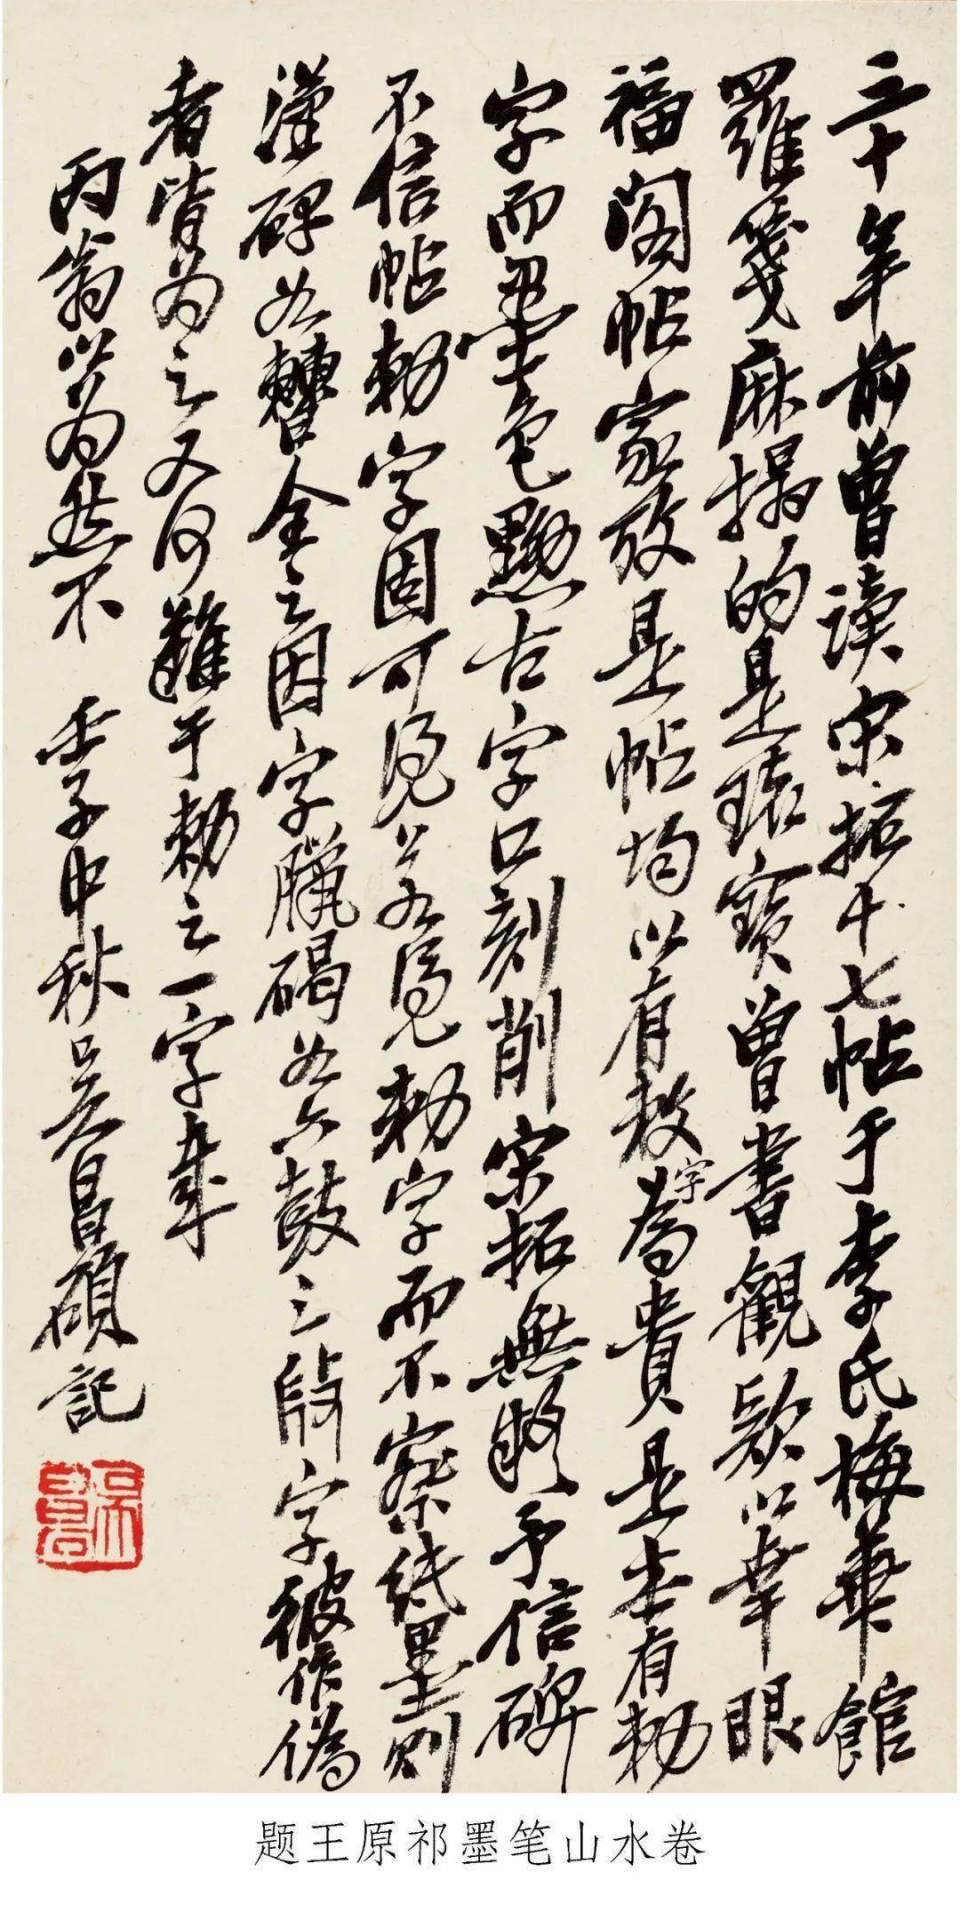 三十年前曾读宋拓十七帖于李氏梅华馆
罗笺麻搨的是瑰宝曾书观款以幸眼
福阁帖家致是帖均以有敕字为贵是本有勅
字而墨色黝古字口刻削宋拓无疑予信碑
不信帖勅字固可凭若凭勅字而不察纸墨则
汉碑如朁金之因字腊碣如六鼓之字彼作伪
者皆为之又何难于勅之一字哉
丙翁以为然不 壬子中秋吴昌硕记
题王原祁墨笔山水卷